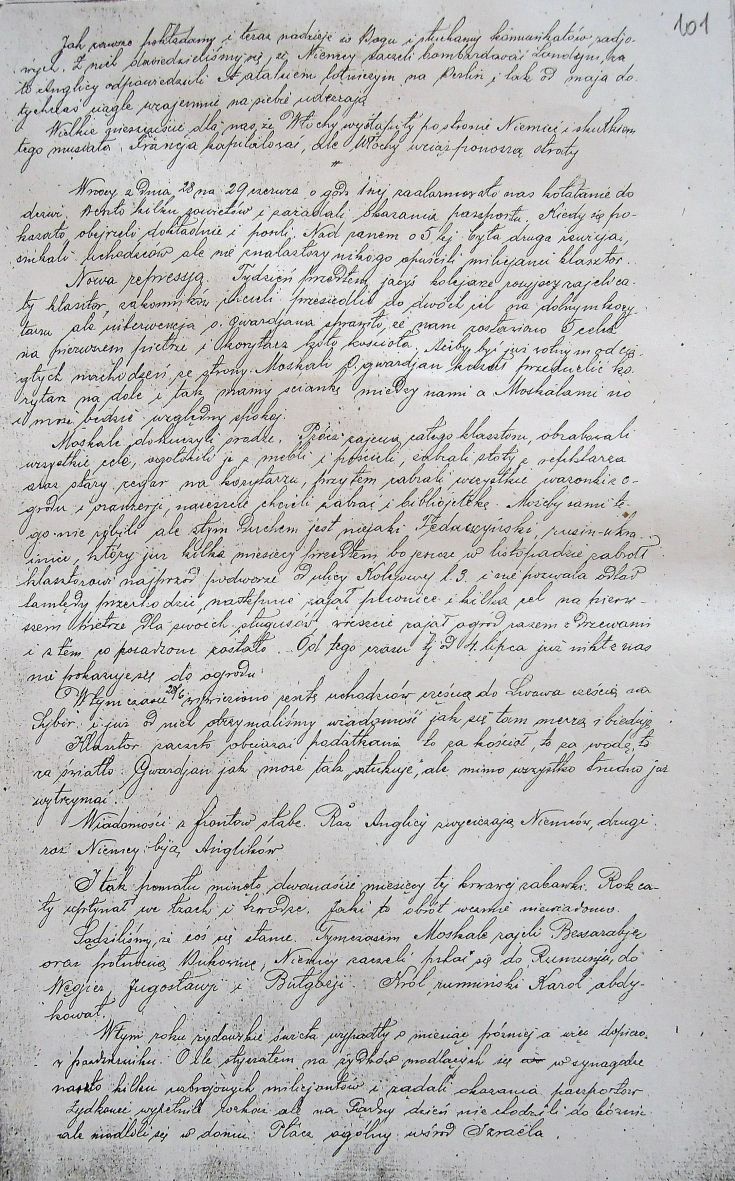 101
Jak zawsze pokładamy i teraz nadzieję w Bogu i słuchamy komunikatów radjo-
wych. Z nich dowiedzieliśmy się, że Niemcy zaczęli bombardować Londyn, na
to Anglicy odpowiedzieli atakiem lotniczym na Berlin i tak od maja do-
tychczas ciągle wzajemnie na siebie uderzają
Wielkie nieszczęście dla nas, że Włochy wystąpiły po stronie Niemiec i skutkiem
tego musiała Francja kapitulować, ale Włochy wciąż ponoszą straty
W nocy z dnia 28 na 29 czerwca o godz. 1 ej zaalarmowało nas kołatanie do
drzwi. Weszło kilku sowietów i zażądali okazania paszportu. Kiedy się po-
kazało, obejrzeli dokładnie i poszli. Nad ranem o 5 tej była druga rewizja,
szukali uchodźców ale nie znalazłszy nikogo opuścili milicjanci klasztor.
Nowa repressja. Tydzień przedtem jacyś kolejarze rosyjscy zajęli ca-
ły klasztor, zakonników chcieli przesiedlić do dwóch cel na dolnym kory-
tarzu ale interwencja o. Gwardjana sprawiła, że nam zostawiono 5 cel
na pierwszem piętrze i korytarz koło kościoła. Ażeby być już wolnym od cią-
głych nachodzeń ze strony Moskali O. gwardjan kazał przedzielić ko-
rytarz na dole i tak mamy ściankę między nami a Moskalami no
i może będzie względny spokój.
Moskale dokuczyli srodze. Prócz zajęcia całego klasztoru, obrabowali
wszystkie cele, ogołocili je z mebli i pościeli, zabrali stoły z refektarza
oraz stary zegar na korytarzu, przytem zabrali wszystkie wazonki z o-
grodu i oranżerji, nareszcie chcieli zabrać i bibljotekę. Możeby sami te-
go nie zrobili ale złym duchem jest niejaki Fedaczyński, rusin-ukra-
iniec, który już kilka miesięcy przedtem bo jeszcze w listopadzie zabrał
klasztorowi najprzód podwórze od ulicy Kolejowej l. 3. i nie pozwala odtąd
tamtędy przechodzić, następnie zajął piwnice i kilka cel na pierw-
szem piętrze dla swoich sługusów, wreszcie zajął ogród razem z drzewami
i z tem co posadzone zostało. Od tego czasu tj od 4. lipca już nikt z nas
nie pokazuje się do ogrodu
W tym czasie 29/6 wywieziono resztę uchodźców częścią do Lwowa częścią na
Sybir i już od nich otrzymaliśmy wiadomość jak się tam męczą i biedują
Klasztor zaczęto obciążać podatkami to za kościół, to za wodę, to
za światło. Gwardjan jak może tak „sztukuje", ale mimo wszystko trudno już
wytrzymać.
Wiadomości z frontów słabe. Raz Anglicy zwyciężają Niemców, drugi
raz Niemcy biją Anglików
I tak pomału minęło dwanaście miesięcy tej krwawej zabawki. Rok ca-
ły upłynął we łzach i trwodze. Jaki to obrót weźmie niewiadomo.
Sądziliśmy, że coś się stanie. Tymczasem Moskale zajęli Bessarabję
oraz północną Bukowinę, Niemcy zaczęli pchać się do Rumunji, do
Węgier, Jugosławji i Bułgarji. Król rumuński Karol abdy-
kował.
W tym roku żydowskie święta wypadły o miesiąc później a więc dopiero
w październiku. O ile słyszałem na żydków modlących się w synagodze
naszło kilku uzbrojonych milicjantów i żądali okazania paszportów
Żydkowie wypełnili rozkaz ale na Sądny dzień nie chodzili do bóżnic
ale modlili się w domu. Płacz ogólny wśród Izraela.